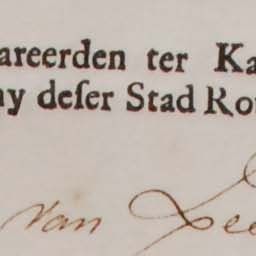 areerden ter Ka
ny deſer Stad Ro
van Lee